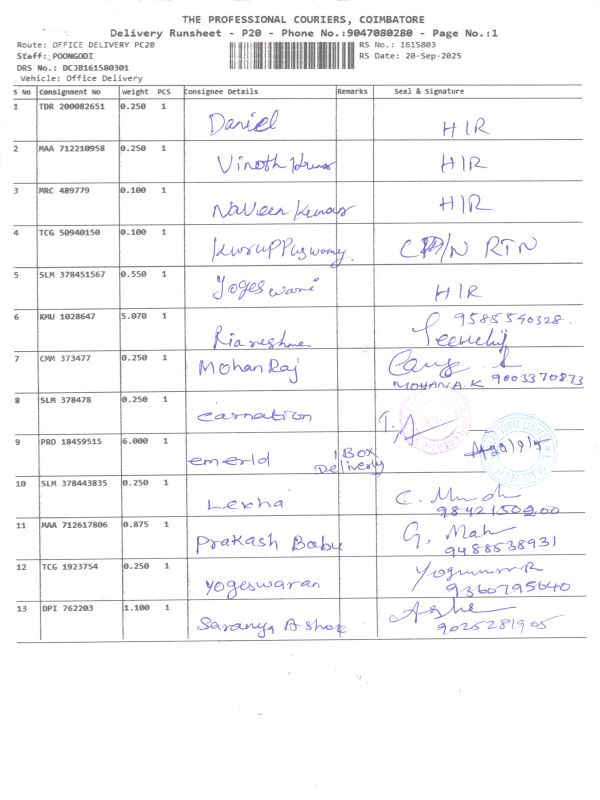 THE PROFESSIONAL COURIERS, COIMBATORE
Delivery Runsheet - P20 - Phone No.:9047080280 - Page No.:1
Route: OFFICE DELIVERY PC20 RS No.: 1615803
Staff: POONGODI RS Date: 20-Sep-2025
DRS No.: DCJB161580301
Vehicle: Office Delivery
S No Consignment No Weight PCS Consignee Details Remarks Seal & Signature
1 TDR 200082651 0.250 1
Daniel HIR
2 MAA 712210958 0.250 1
Vinoth Kumar HIR
3 MRC 489779 0.100 1
Naveen Kumar HIR
4 TCG 50940150 0.100 1
RTN
5 SLM 378451567 0.550 1
Yogeswari HIR
6 KMU 1028647 5.070 1
9585540328
7 CMM 373477 0.250 1
Mohan Raj
MOHAN A.K 9003370873
8 SLM 378478 0.250 1
carnation
9 PRO 18459515 6.000 1
emerld 1 Box
Delivery
10 SLM 378443835 0.250 1
Lekha
9842150200
11 MAA 712617806 0.875 1
Prakash Babu G. Mah
9488538931
12 TCG 1923754 0.250 1
Yogeswaran
9360795640
13 DPI 762203 1.100 1
Saranya Ashok
9025281905